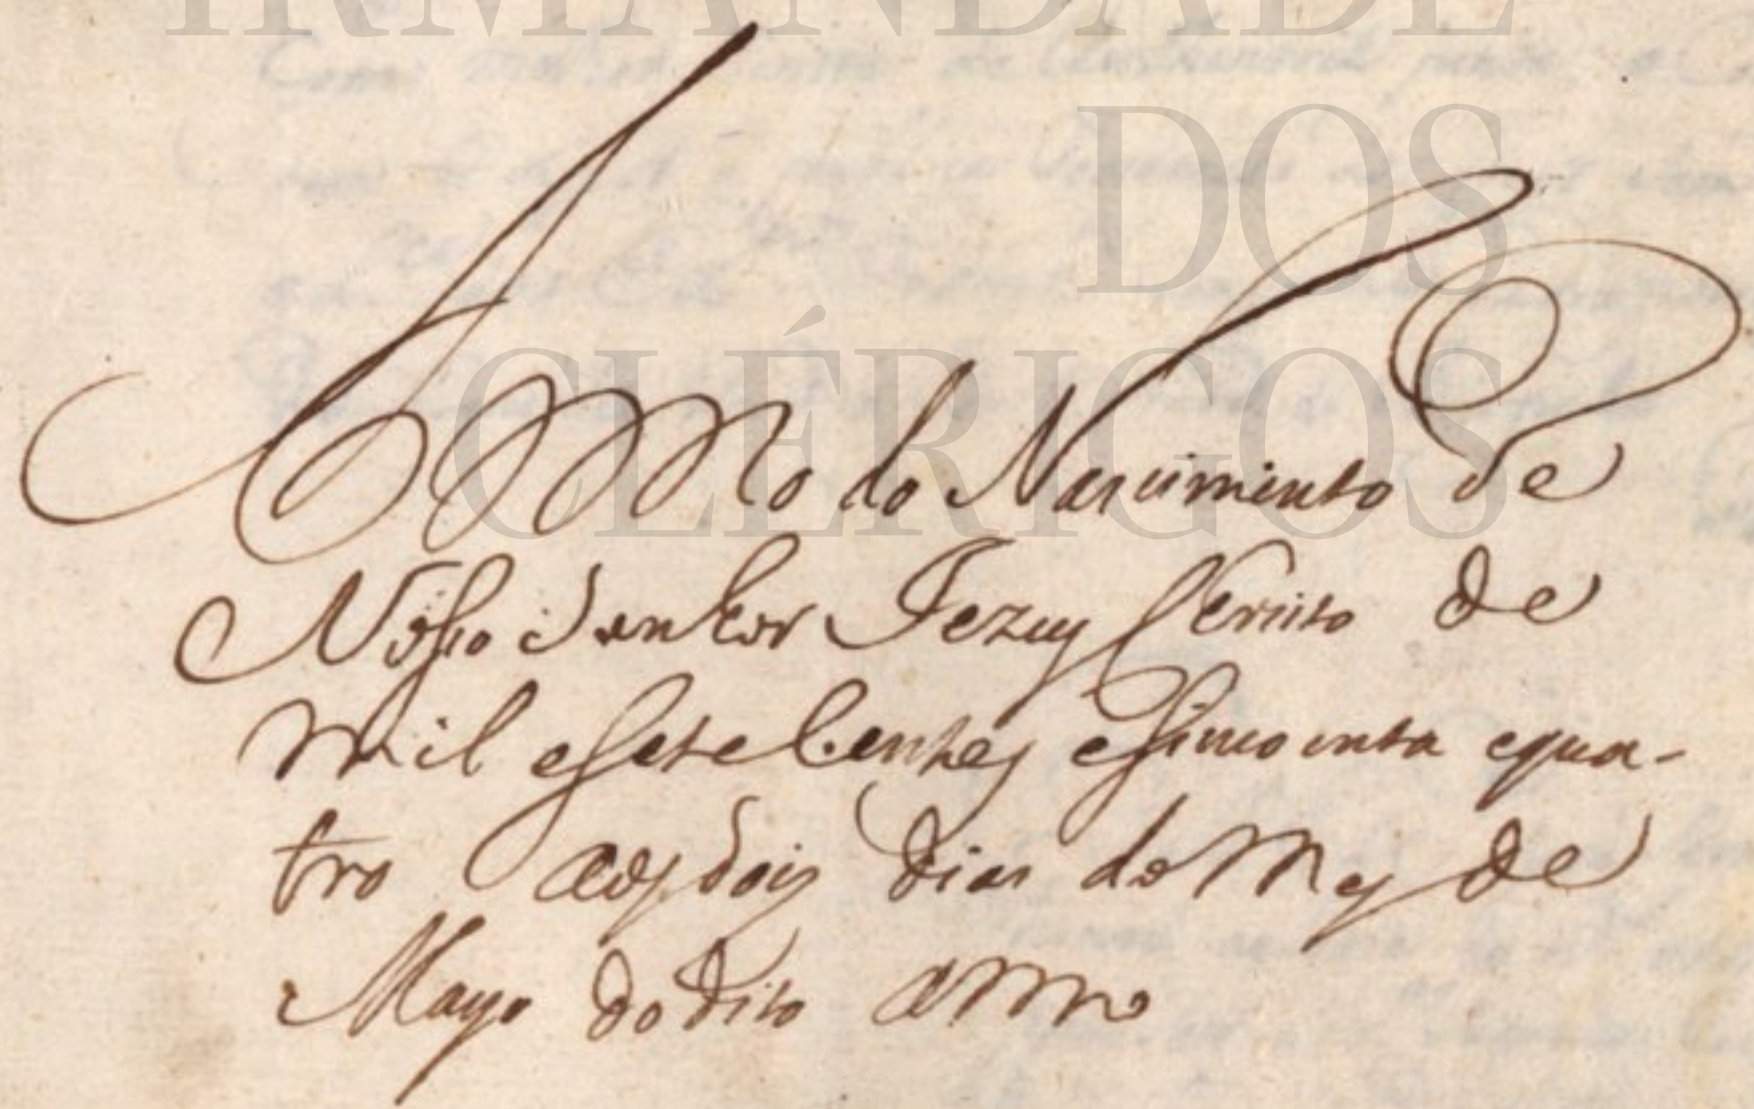 IRMANDADE
DOS
CLÉRIGOS
Anno do Nascimento de
Nosso Senhor Jezus Christo de
mil esete Centos esincoenta equa-
tro aos dois dias do Mes de
Mayo do dito anno